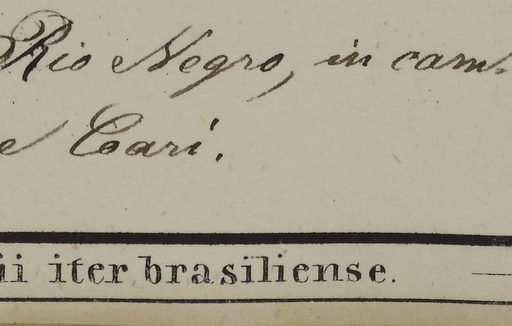 Rio Negro, in cam-
e Cari.
ii iter brasiliense.